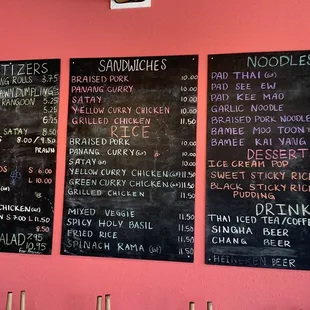 TIZERS
ING ROLLS 3.75
AWN DUMPLINGS 5.25
RANGOON 5.25
6.25
6.25
SATAY 8.50
8.00 / 8.50
PRAWN
S 6.00
L 10.00
CHICKEN (GF)
S 7.00 L 11.50
11.50
ALAD 7.95
10.95
SANDWICHES
BRAISED PORK 10.00
PANANG CURRY 10.00
SATAY 10.00
YELLOW CURRY CHICKEN 10.00
GRILLED CHICKEN 10.00
RICE
BRAISED PORK 11.50
PANANG CURRY (GF) 11.50
SATAY (GF) 11.50
YELLOW CURRY CHICKEN (GF) 11.50
GREEN CURRY CHICKEN (GF) 11.50
GRILLED CHICKEN 11.50
MIXED VEGGIE 11.50
SPICY HOLY BASIL 11.50
FRIED RICE 11.50
SPINACH RAMA (GF) 11.50
NOODLES
PAD THAI (GF)
PAD SEE EW
PAD KEE MAO
GARLIC NOODLE
BRAISED PORK NOODLE
BAMEE MOO TOON
BAMEE KAI YANG
DESSERT
ICE CREAM POP
SWEET STICKY RICE
BLACK STICKY RICE
PUDDING
DRINK
THAI ICED TEA/COFFEE
SINGHA BEER
CHANG BEER
HEINEKEN BEER